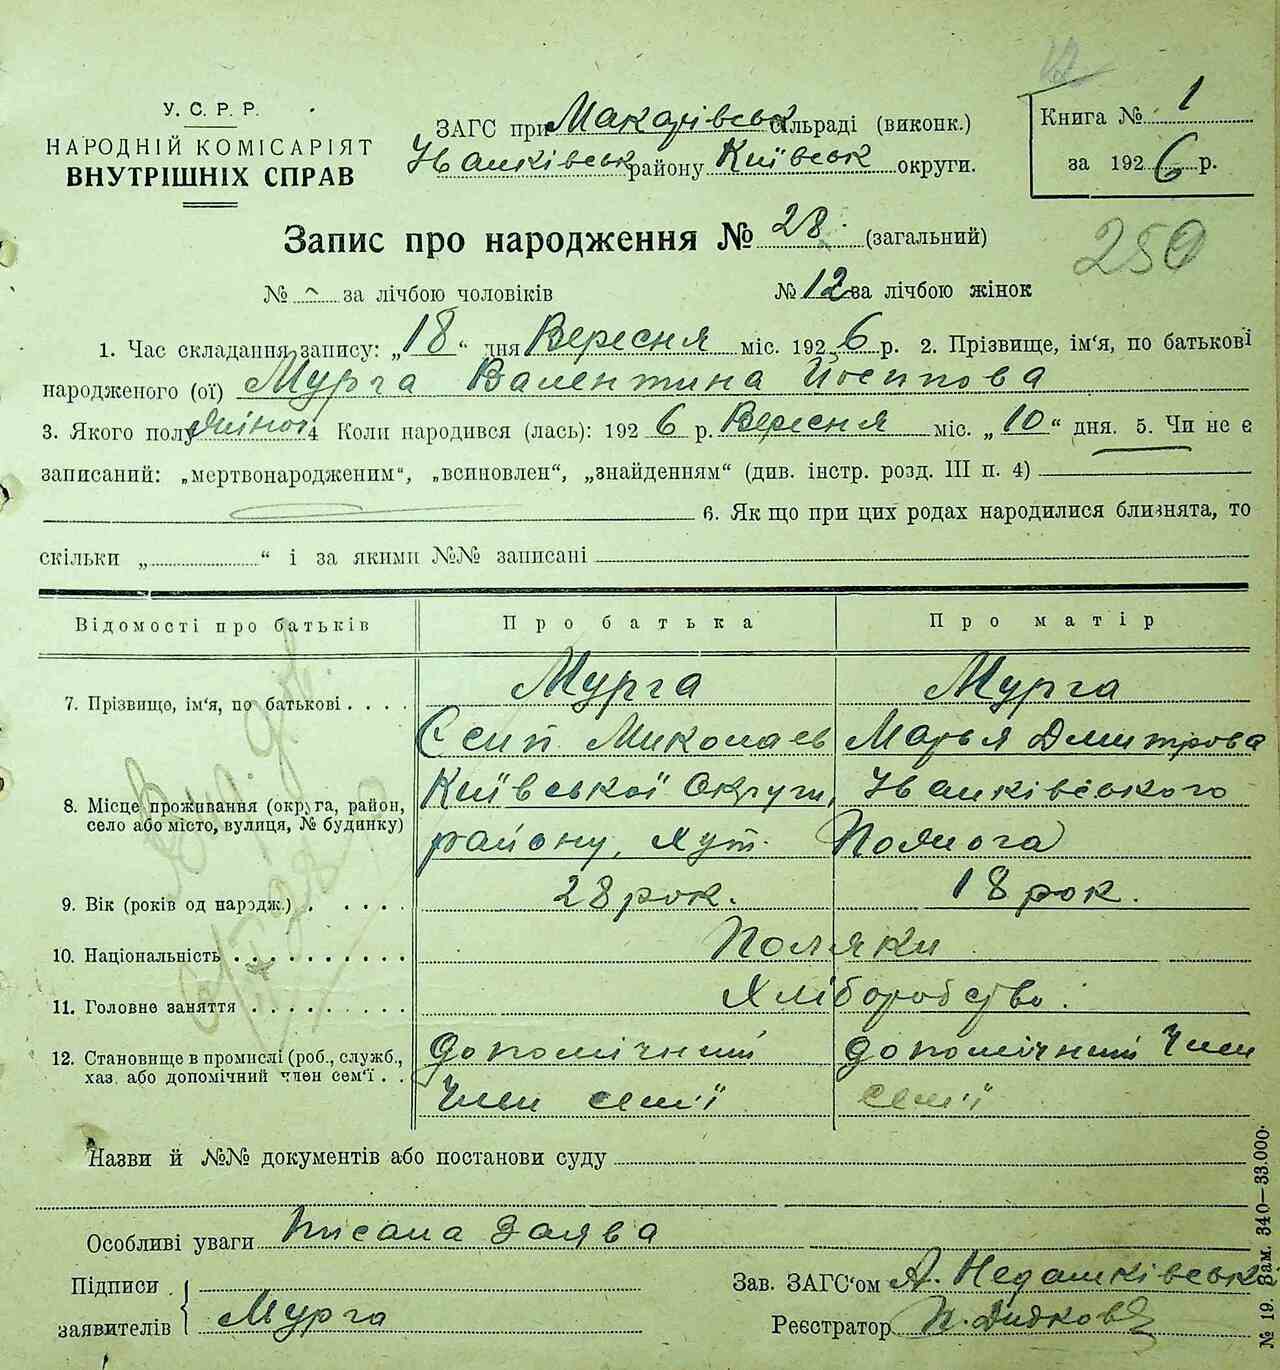 У. С. Р. Р.
НАРОДНІЙ КОМІСАРІЯТ
ВНУТРІШНІХ СПРАВ
ЗАГС при Макарівськ сільраді (виконк.)
Іванківськ району Київськ округи.
Книга № 1
за 1926 р.
Запис про народження № 28 (загальний)
250
№ ~ за лічбою чоловіків № 12 за лічбою жінок
1. Час складання запису: „18“ дня Вересня міс. 1926 р. 2. Прізвище, ім‘я, по батькові
народженого (ої) Мурга Валентина Йосипова
3. Якого полу жіноч 4 Коли народився (лась): 1926 р. Вересня міс. „10“ дня. 5. Чи не є
записаний: „мертвонародженим“, „всиновлен“, „знайденням“ (див. інстр. розд. III п. 4)
6. Як що при цих родах народилися близнята, то
скільки „ “ і за якими №№ записані
Відомості про батьків Про батька Про матір
7. Прізвище, ім‘я, по батькові Мурга Мурга
Єсип Миколаєв Марья Дмитрова
8. Місце проживання (округа, район, село або місто, вулиця, № будинку) Київської Округи, Іванківського
району, хут.
9. Вік (років од народж.) 28 рок. 18 рок.
10. Національність Поляки
11. Головне заняття Хліборобство.
12. Становище в промислі (роб., служб., хаз. або допомічний член сем‘ї Допомічний Допомічний Член
Член семії семії
Назви й №№ документів або постанови суду
Особливі уваги Писана заява
Підписи заявителів Мурга
Зав. ЗАГС‘ом А. Недашківськ
Реєстратор
№ 19. Зам. 340—33.000.